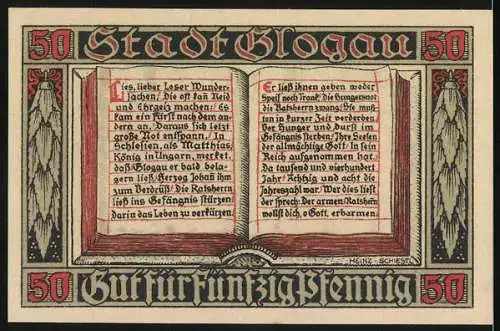 50 Stadt Glogau 50
Lies, lieber Leser Wunder-
sachen/ Die oft kan Neid
und Ehrgeiz machen/ Es
kam ein Fürst nach dem
andern an. Daraus sich letzt
große Not entspann. / In
Schlesien, als Matthias,
König in Ungarn, merket,
daß Glogau er bald bela-
gern ließ/ Herzog Johañ ihm
zum Verdrüß/ Die Ratsherrn
ins Gefängnis stürzen/
Darin das Leben zu verkürzen.
Er ließ ihnen geben weder
Speis noch Trank/ Die Hungersnot
die Ratsherrn zwang/ Sie muß-
ten in kurzer Zeit verderben
Vor Hunger und Durst im
Gefängnis sterben/ Ihre Seelen
der allmächtige Gott/ In sein
Reich aufgenommen hat.
Da tausend und vierhundert
Jahr/ Achtzig und acht die
Jahreszahl war. / Wer dies liest
der sprech: Der armen Ratsherrn
wollst dich, o Gott, erbarmen.
HEINZ SCHIESTL
50 Gut für Fünfzig Pfennig 50